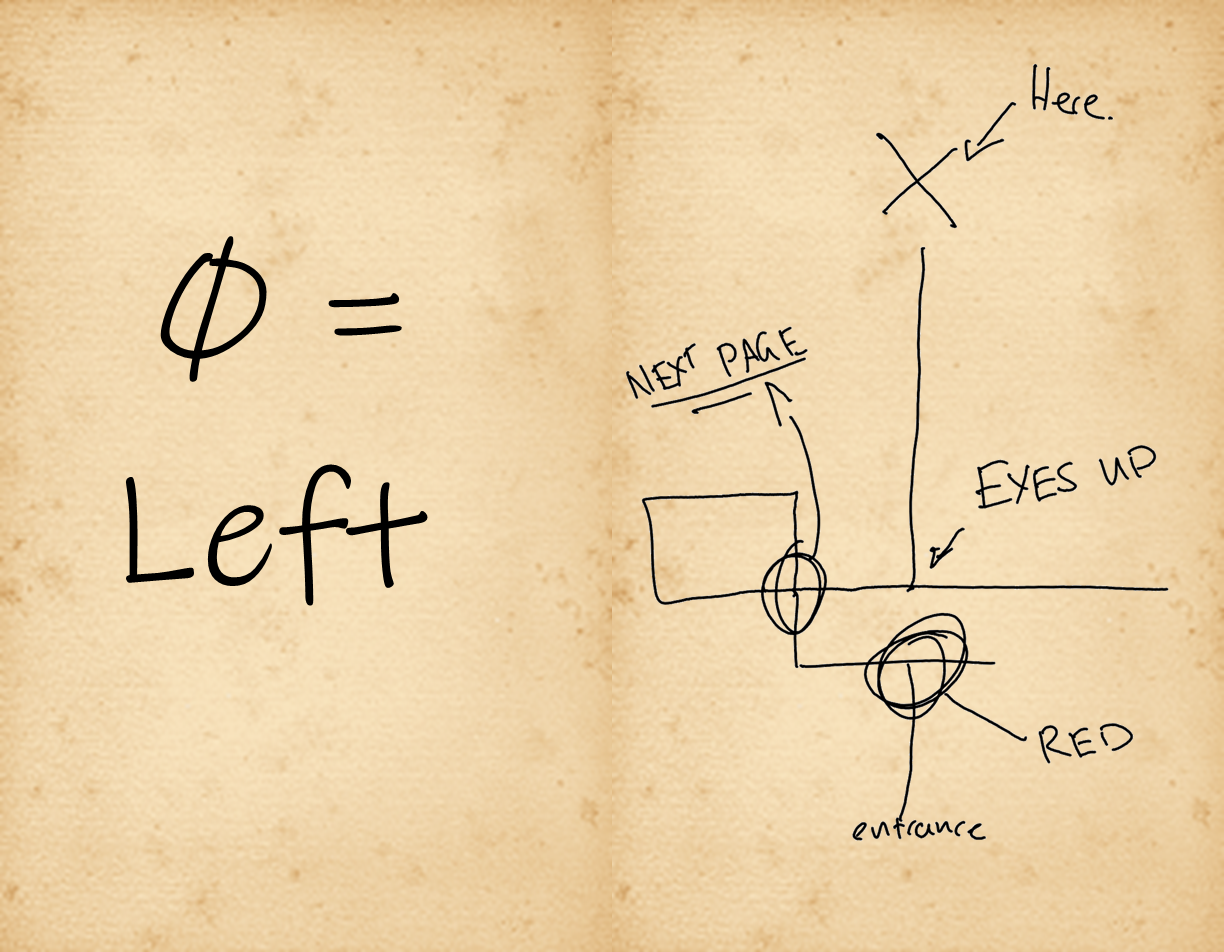 Φ =
Left
Here.
NEXT PAGE
EYES UP
RED
entrance